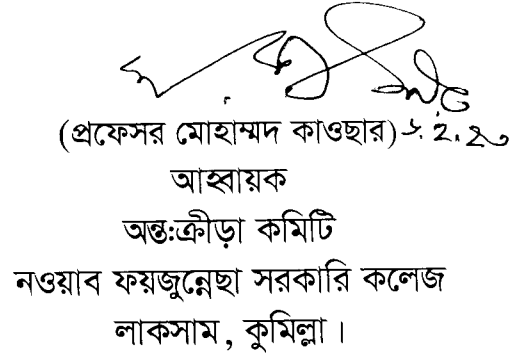 (প্রফেসর মোহাম্মদ কাওছার)
আহ্বায়ক
অন্ত:ক্রীড়া কমিটি
নওয়াব ফয়জুন্নেছা সরকারি কলেজ
লাকসাম, কুমিল্লা।